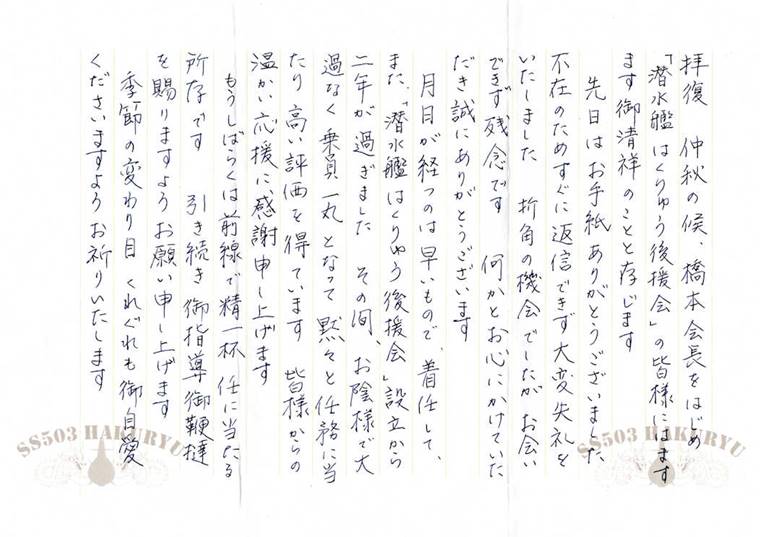 拝復　仲秋の候、橋本会長をはじめ
「潜水艦はくりゅう後援会」の皆様にはます
ます御清祥のことと存じます
先日はお手紙ありがとうございました、
不在のためすぐに返信できず大変失礼を
いたしました　折角の機会でしたが　お会い
できず残念です　何かとお心にかけていた
だき誠にありがとうございます
月日が経つのは早いもので、着任して、
また、「潜水艦はくりゅう後援会」設立から
二年が過ぎました　その間、お陰様で大
過なく乗員一丸となって　黙々と任務に当
たり　高い評価を得ています　皆様からの
温かい応援に、感謝申し上げます
もうしばらくは前線で精一杯　任に当たる
所存です　引き続き御指導御鞭撻
を賜りますようお願い申し上げます
季節の変わり目　くれぐれも御自愛
くださいますようお祈りいたします
SS503 HAKURYU
SS503 HAKURYU